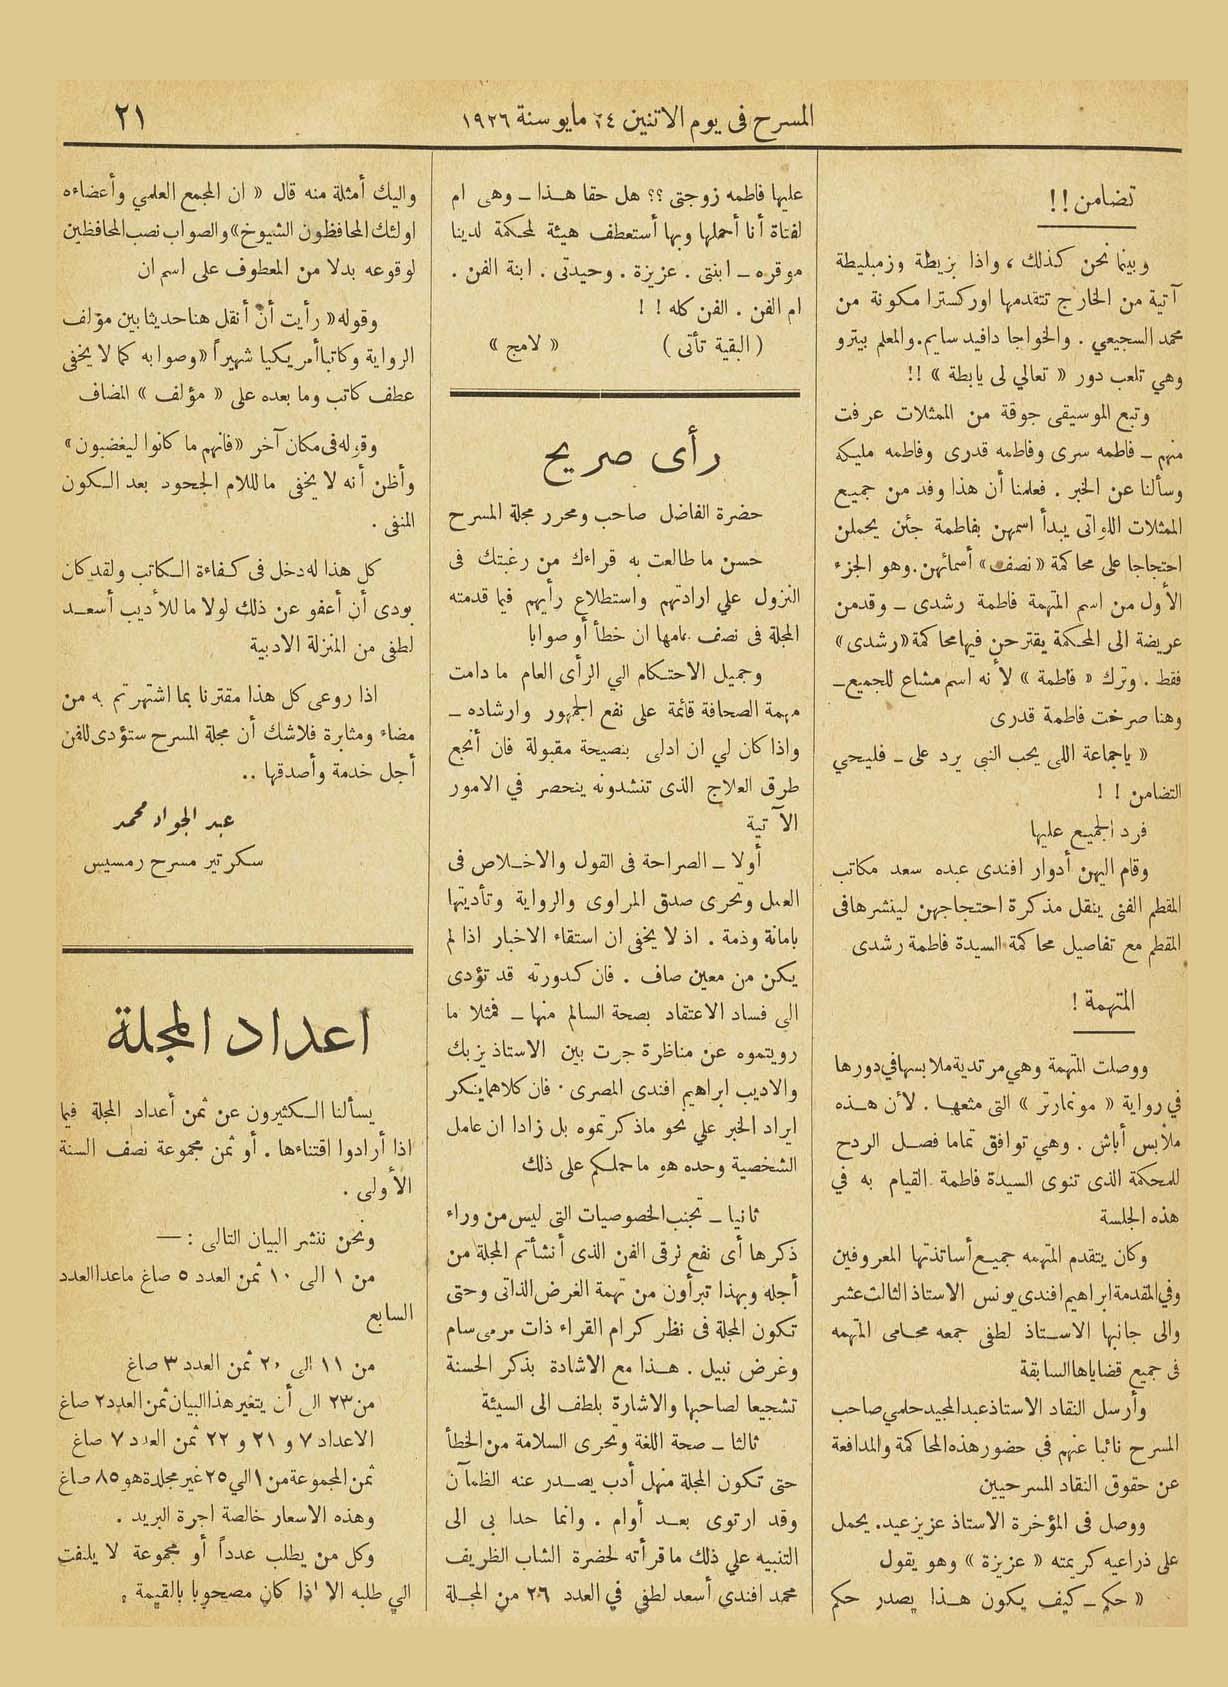 المسرح فى يوم الاثنين ٢٤ مايو سنة ١٩٢٦
٢١
تضامن !!
وبينما نحن كذلك ، واذا بزيطة وزمبليطة
آتية من الخارج تتقدمها اوركسترا مكونة من
محمد السجيعي . والخواجا دافيد سايم . والمعلم بيترو
وهي تلعب دور « تعالي لى يابطة » !!
وتبع الموسيقى جوقة من الممثلات عرفت
منهم ــ فاطمه سرى وفاطمه قدرى وفاطمه مليكه
وسألنا عن الخبر . فعلمنا أن هذا وفد من جميع
الممثلات اللواتى يبدأ اسمهن بفاطمة جئن يحملن
احتجاجا على محاكمة « نصف » أسمائهن . وهو الجزء
الأول من اسم المتهمة فاطمة رشدى ــ وقدمن
عريضة الى المحكمة يقترحن فيها محاكمة « رشدى »
فقط . وترك « فاطمة » لأنه اسم مشاع للجميع ــ
وهنا صرخت فاطمة قدرى
« ياجماعة اللى يحب النبى يرد على ــ فليحي
التضامن ! !
فرد الجميع عليها
وقام اليهن أدوار افندى عبده سعد مكاتب
المقطم الفنى ينقل مذكرة احتجاجهن لينشرها فى
المقطم مع تفاصيل محاكمة السيدة فاطمة رشدى
المتهمة !
ووصلت المتهمة وهي مرتدية ملابسها في دورها
في رواية « مونمارتر » التى مثعها . لأن هذه
ملابس أباش . وهي توافق تماما فصل الردح
للمحكمة الذى تنوى السيدة فاطمة القيام به في
هذه الجلسة
وكان يتقدم المتهمه جميع أساتذتها المعروفين
وفي المقدمة ابراهيم افندى يونس الاستاذ الثالث عشر
والى جانبها الاستاذ لطفى جمعه محامى المتهمه
فى جميع قضاياها السابقة
وأرسل النقاد الاستاذ عبد المجيد حلمي صاحب
المسرح نائبا عنهم في حضور هذه المحاكمة والمدافعة
عن حقوق النقاد المسرحيين
ووصل فى المؤخرة الاستاذ عزيز عيد . يحمل
على ذراعيه كريمته « عزيزة » وهو يقول
« حكم ــ كيف يكون هذا يصدر حكم
عليها فاطمه زوجتى ؟؟ هل حقا هذا ــ وهى ام
لفتاة أنا أحملها وبها أستعطف هيئة لمحكمة لدينا
موقره ــ ابنتى . عزيزة . وحيدتى . ابنة الفن .
ام الفن . الفن كله ! !
( البقية تأتى ) « لامج »
رأى صريح
حضرة الفاضل صاحب ومحرر مجلة المسرح
حسن ما طالعت به قراءك من رغبتك فى
النزول علي ارادتهم واستطلاع رأيهم فيما قدمته
المجلة فى نصف عامها ان خطأ أو صوابا
وجميل الاحتكام الي الرأى العام ما دامت
مهمة الصحافة قائمة على نفع الجمهور وارشاده ــ
واذا كان لي ان ادلى بنصيحة مقبولة فان أنجع
طرق العلاج الذى تنشدونه ينحصر في الامور
الآتية
أولا ــ الصراحة فى القول والاخلاص فى
العمل وتحرى صدق المراوى والرواية وتأديتها
بامانة وذمة . اذ لا يخفى ان استقاء الاخبار اذا لم
يكن من معين صاف . فان كدورته قد تؤدى
الى فساد الاعتقاد بصحة السالم منها ــ فمثلا ما
رويتموه عن مناظرة جرت بين الاستاذ يزبك
والاديب ابراهيم افندى المصرى . فان كلاهما ينكر
ايراد الخبر علي نحو ما ذكرتموه بل زادا ان عامل
الشخصية وحده هو ما حملكم على ذلك
ثانيا ــ تجنب الخصوصيات التى ليس من وراء
ذكرها أى نفع لرقى الفن الذى أنشأتم المجلة من
أجله وبهذا تبرأون من تهمة الغرض الذاتى وحتى
تكون المجلة فى نظر كرام القراء ذات مرمى سام
وغرض نبيل . هذا مع الاشادة بذكر الحسنة
تشجيعا لصاحبها والاشارة بلطف الى السيئة
ثالثا ــ صحة اللغة وتحرى السلامة من الخطأ
حتى تكون المجلة منهل أدب يصدر عنه الظمآن
وقد ارتوى بعد أوام . وانما حدا بى الى
التنبيه علي ذلك ما قرأته لحضرة الشاب الظريف
محمد افندى أسعد لطفي في العدد ٢٦ من المجلة
واليك أمثلة منه قال « ان المجمع العلمي وأعضاءه
اولئك المحافظون الشيوخ » والصواب نصب المحافظين
لوقوعه بدلا من المعطوف على اسم ان
وقوله « رأيت أن أنقل هنا حديثا بين مؤلف
الرواية وكاتبا أمريكيا شهيراً » وصوابه كما لا يخفى
عطف كاتب وما بعده على « مؤلف » المضاف
وقوله فى مكان آخر « فانهم ما كانوا ليغضبون »
وأظن أنه لا يخفى ما للام الجحود بعد الكون
المنفى .
كل هذا له دخل فى كفاءة الكاتب ولقد كان
بودى أن أعفو عن ذلك لولا ما للأديب أسعد
لطفى من المنزلة الادبية
اذا روعى كل هذا مقترنا بما اشتهرتم به من
مضاء ومثابرة فلاشك أن مجلة المسرح ستؤدى للفن
أجل خدمة وأصدقها ..
عبد الجواد محمد
سكرتير مسرح رمسيس
اعداد المجلة
يسألنا الكثيرون عن ثمن أعداد المجلة فيما
اذا أرادوا اقتناءها . أو ثمن مجموعة نصف السنة
الأولى .
ونحن ننشر البيان التالى : —
من ١ الى ١٠ ثمن العدد ٥ صاغ ماعدا العدد
السابع
من ١١ الى ٢٠ ثمن العدد ٣ صاغ
من ٢٣ الى أن يتغير هذا البيان ثمن العدد ٢ صاغ
الاعداد ٧ و ٢١ و ٢٢ ثمن العدد ٧ صاغ
ثمن المجموعة من ١ الي ٢٥ غير مجلدة هو ٨٥ صاغ
وهذه الاسعار خالصة اجرة البريد .
وكل من يطلب عدداً أو مجموعة لا يلتفت
الي طلبه الا اذا كان مصحوبا بالقيمة .